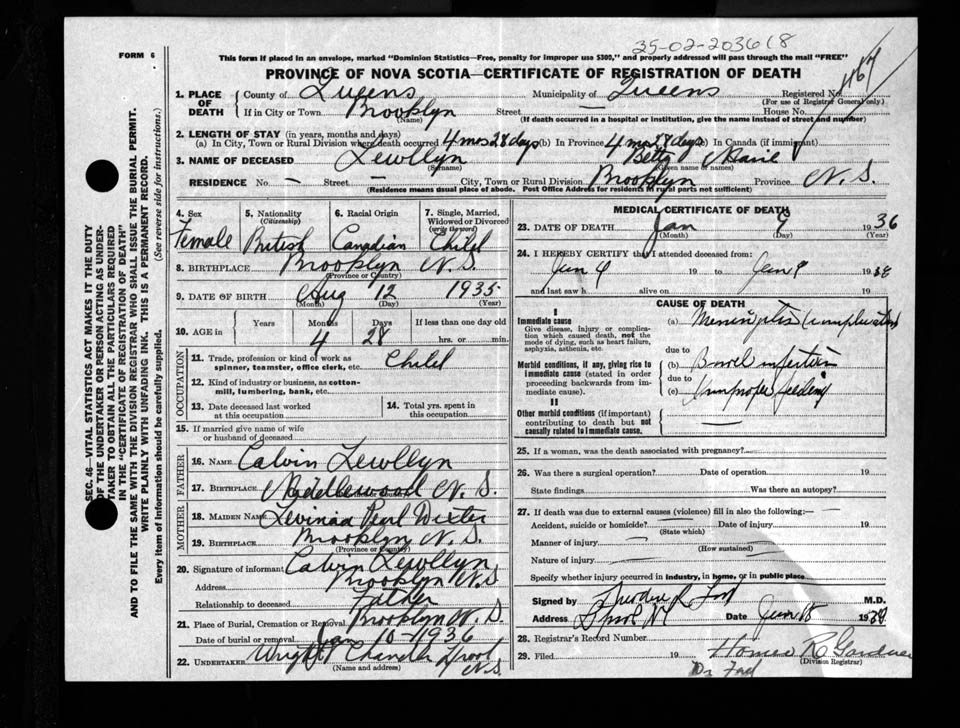 35-02-203618
FORM 6
This form if placed in an envelope, marked "Dominion Statistics—Free, penalty for improper use $300," and properly addressed will pass through the mail "FREE"
PROVINCE OF NOVA SCOTIA—CERTIFICATE OF REGISTRATION OF DEATH
1. PLACE OF DEATH County of Queens Municipality of Queens Registered No.
(For use of Registrar General only.)
If in City or Town Brooklyn Street — House No.
(Name) (If death occurred in a hospital or institution, give the name instead of street and number)
2. LENGTH OF STAY (in years, months and days)
(a) In City, Town or Rural Division where death occurred 4 mos 28 days (b) In Province 4 mos 28 days (c) In Canada (if immigrant)
3. NAME OF DECEASED Lewllyn Betty Marie
(Surname) (Given name or names)
RESIDENCE No. — Street — City, Town or Rural Division Brooklyn Province N. S.
(Residence means usual place of abode. Post Office Address for residents in rural parts not sufficient)
4. Sex Female
5. Nationality (Citizenship) British
6. Racial Origin Canadian
7. Single, Married, Widowed or Divorced (write the word) Child
8. BIRTHPLACE Brooklyn N. S.
(Province or Country)
9. DATE OF BIRTH Aug 12 1935
(Month) (Day) (Year)
10. AGE in Years Months Days If less than one day old
4 28 hrs. or min.
OCCUPATION
11. Trade, profession or kind of work as spinner, teamster, office clerk, etc. Child
12. Kind of industry or business, as cotton-mill, lumbering, bank, etc.
13. Date deceased last worked at this occupation
14. Total yrs. spent in this occupation.
15. If married give name of wife or husband of deceased
FATHER
16. NAME Calvin Lewllyn
17. BIRTHPLACE Middlewood N. S.
MOTHER
18. MAIDEN NAME Pearl Dexter
19. BIRTHPLACE Brooklyn N. S.
(Province or Country)
20. Signature of informant Calvin Lewllyn
Address Brooklyn N.S
Relationship to deceased Father
21. Place of Burial, Cremation or Removal Brooklyn N. S.
Date of burial or removal Jan 10-1936
22. UNDERTAKER Wright Chandler L'pool N.S.
(Name and address)
MEDICAL CERTIFICATE OF DEATH
23. DATE OF DEATH Jan 9 1936
(Month) (Day) (Year)
24. I HEREBY CERTIFY that I attended deceased from:
Jan 9 19 to Jan 9 19
and last saw h alive on 19
CAUSE OF DEATH
I
Immediate cause
Give disease, injury or complication which caused death, not the mode of dying, such as heart failure, asphyxia, asthenia, etc.
(a) Meningitis (complication)
due to
Morbid conditions, if any, giving rise to immediate cause (stated in order proceeding backwards from immediate cause).
(b) Bowel infection
due to
(c) Improper feeding
II
Other morbid conditions (if important) contributing to death but not causally related to immediate cause. —
25. If a woman, was the death associated with pregnancy?
26. Was there a surgical operation? Date of operation 19
State findings Was there an autopsy?
27. If death was due to external causes (violence) fill in also the following:—
Accident, suicide or homicide? Date of injury 19
(State which)
Manner of injury
(How sustained)
Nature of injury
Specify whether injury occurred in industry, in home, or in public place
Signed by M.D.
Address L'pool NS Date 19
28. Registrar's Record Number
29. Filed 19 Homer R Gardner
(Division Registrar)
SEC. 46—VITAL STATISTICS ACT MAKES IT THE DUTY
OF THE UNDERTAKER OR PERSON ACTING AS UNDER-
TAKER TO OBTAIN ALL THE PARTICULARS REQUIRED
IN THE "CERTIFICATE OF REGISTRATION OF DEATH"
AND TO FILE THE SAME WITH THE DIVISION REGISTRAR WHO SHALL ISSUE THE BURIAL PERMIT.
WRITE PLAINLY WITH UNFADING INK. THIS IS A PERMANENT RECORD.
Every item of information should be carefully supplied. (See reverse side for instructions.)